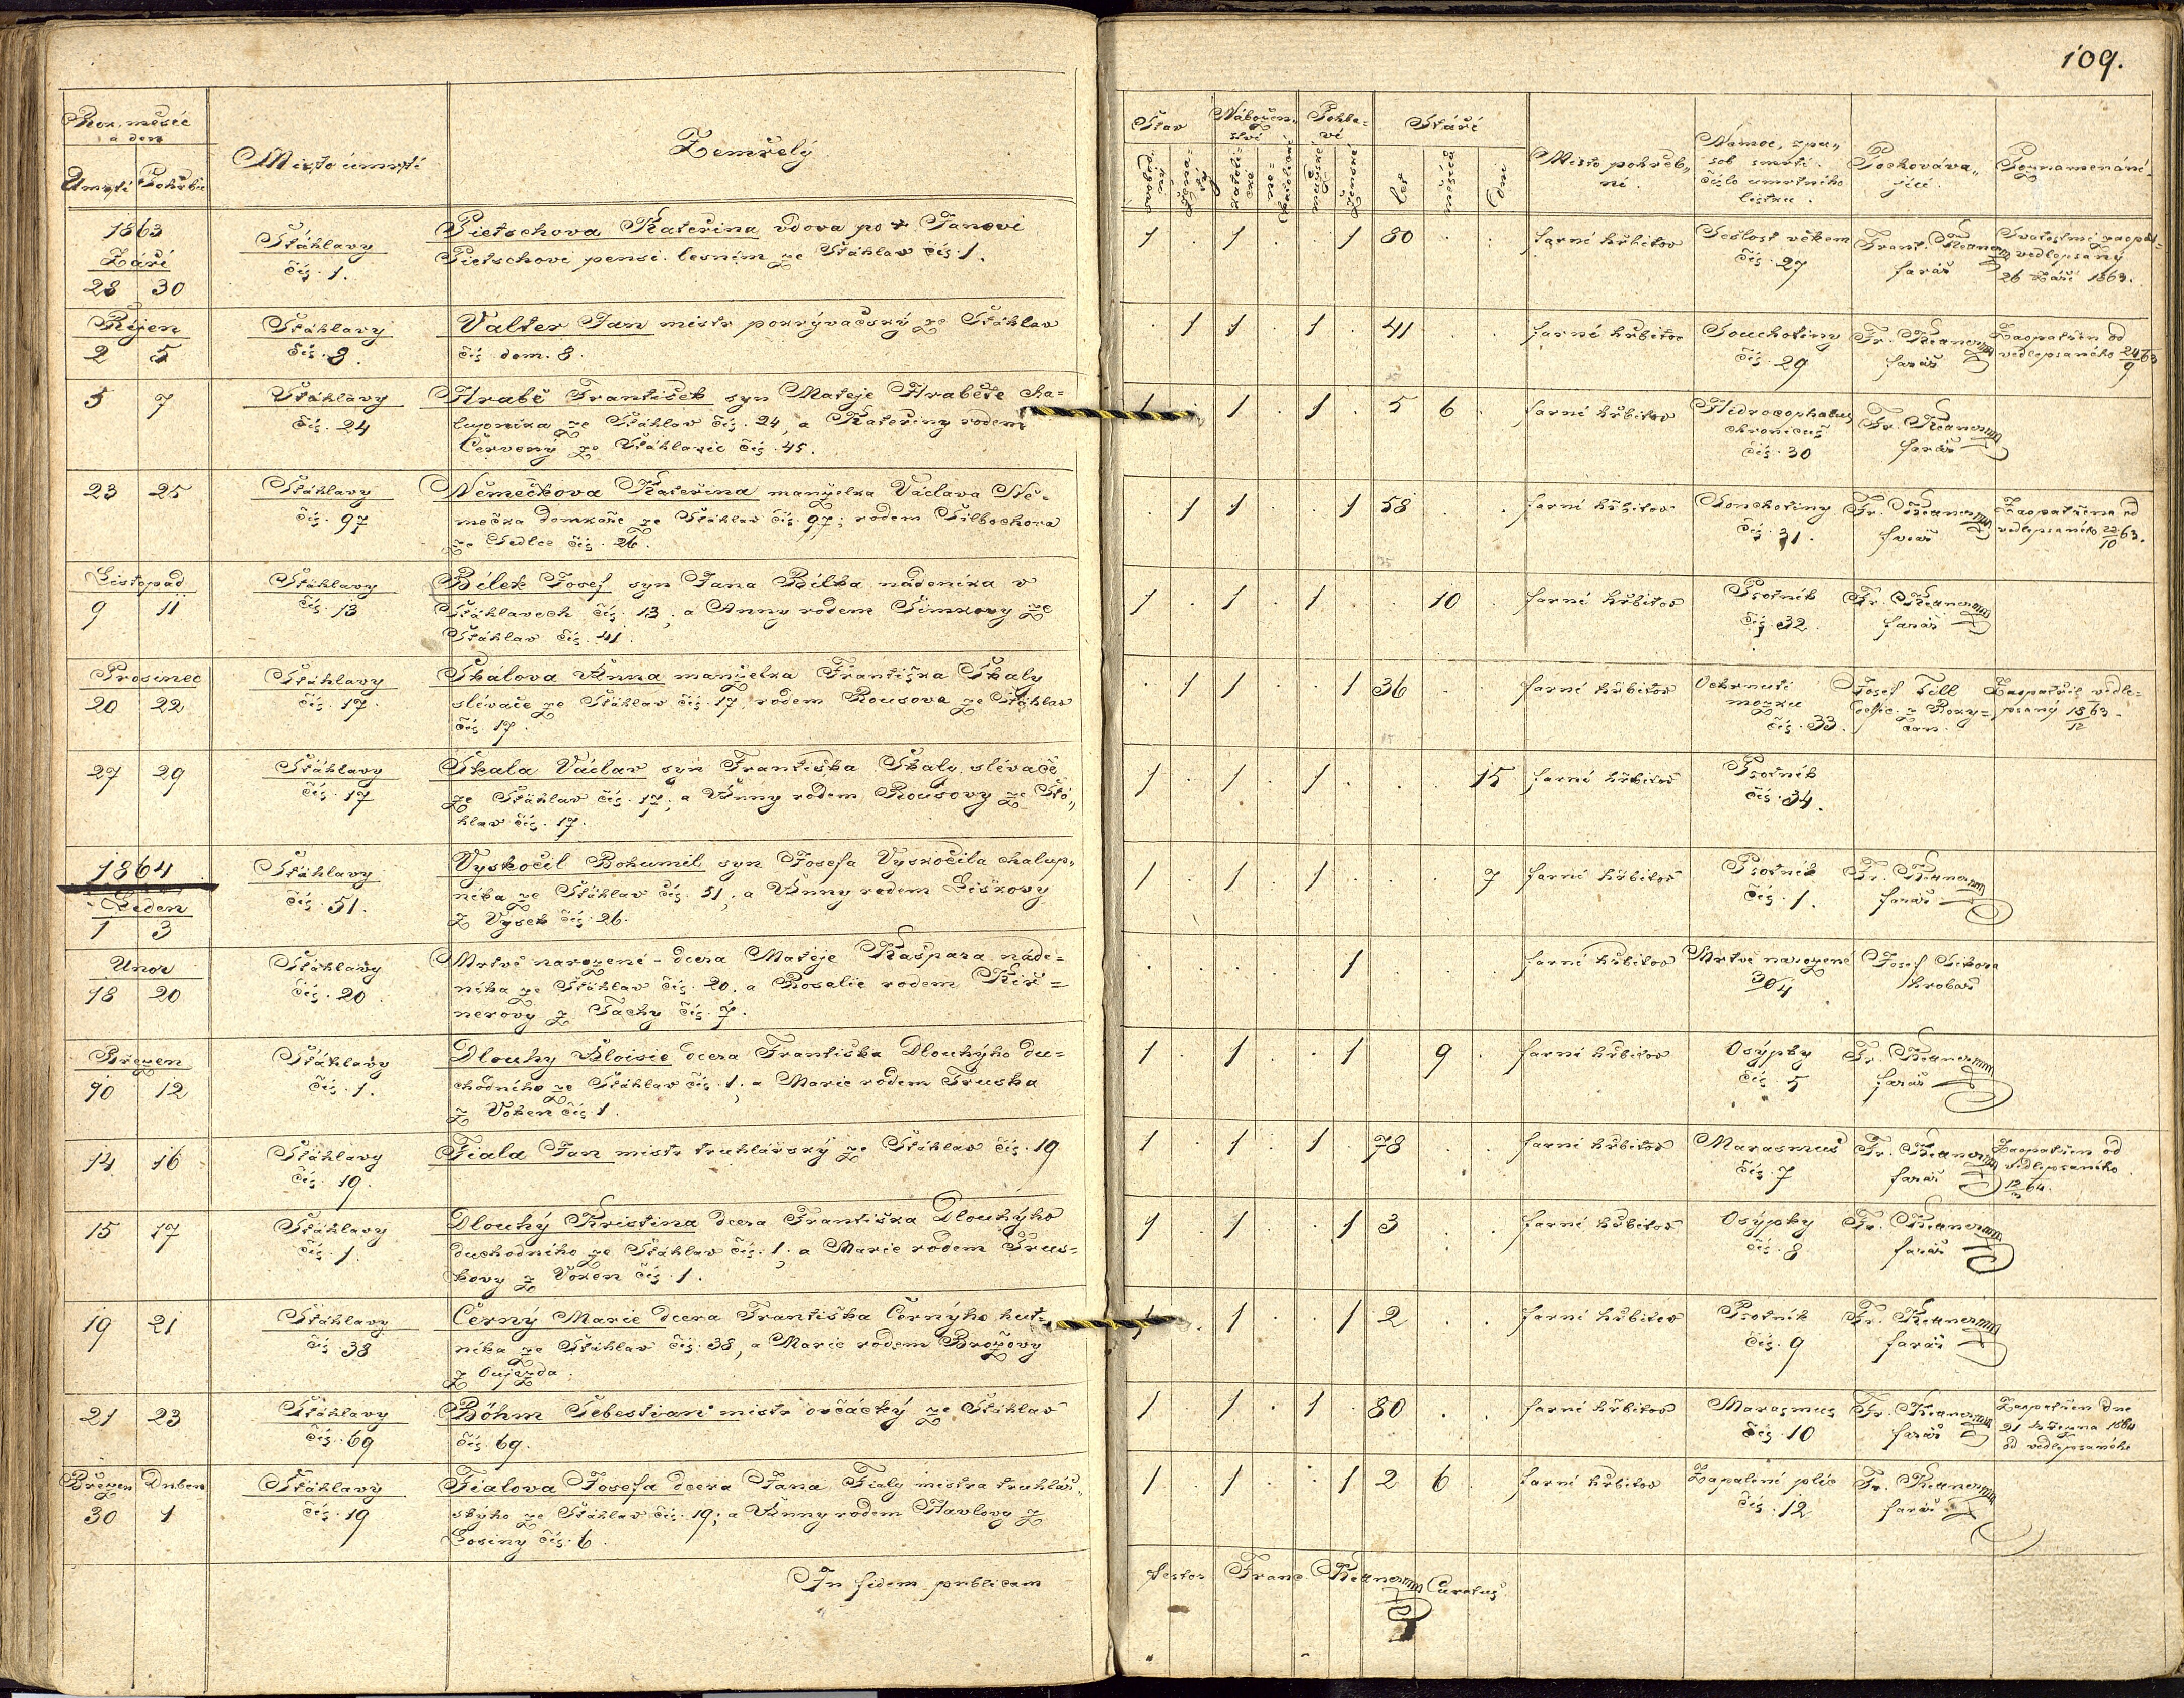 109.
Rok, měsíc
a den
Úmrtí Pohřbu
Místo úmrtí
Zemřelý
Stav
Nábožen-
ství
Pohla-
ví
Stáří
svobodní
ženatí
katolické
nekatolické
mužské
ženské
let
měsíců
dní
Místo pohřbe-
ní.
Nemoc, způ-
sob smrti.
číslo úmrtního
lístku.
Pochováva-
jící
Poznamenání
1863
Září
28 30
Šťáhlavy
čís. 1.
Pietschova Kateřina vdova po † Janovi
Pietschovi pensi. lesním ze Šťáhlav čís. 1.
1 . 1 . . 1 80 . .
farní hřbitov
Sešlost věkem
čís. 27
Frant.
farář
vedlepsaný
26 Září 1863.
Říjen
2 5
Šťáhlavy
čís. 8.
Valter Jan mistr pokrývačský ze Šťáhlav
čís. dom. 8.
. 1 1 . 1 . 41 . .
farní hřbitov
Souchotiny
čís. 29
Fr.
farář
Zaopatřen od
vedlepsaného 24/9 63
5 7
Šťáhlavy
čís. 24
Hrabě František syn Mateje Hraběte cha-
lupníka ze Šťáhlav čís. 24, a Kateřiny rodem
Červený ze Šťáhlavic čís. 45.
1 . 1 . 1 . 5 6 .
farní hřbitov
Hidrocephalus
chronicus
čís. 30
Fr.
farář
23 25
Šťáhlavy
čís. 97
Němečkova Kateřina manželka Václava Ně-
mečka domkaře ze Šťáhlav čís. 97; rodem Silbochova
ze Sedlce čís. 26.
. 1 1 . . 1 58 . .
farní hřbitov
Souchotiny
čís. 31.
Fr.
farář
Zaopatřena od
vedlepsaného 22/10 63.
Listopad
9 11
Šťáhlavy
čís. 13
Bílek Josef syn Jana Bílka nádeníka v
Šťáhlavech čís. 13; a Anny rodem Šimkovy ze
Šťáhlav čís. 41.
1 . 1 . 1 . . 10 .
farní hřbitov
Psotník
čís. 32
Fr.
farář
Prosinec
20 22
Šťáhlavy
čís. 17
Skálova Anna manželka Františka Skaly
slévače ze Šťáhlav čís. 17, rodem Rousova ze Šťáhlav
čís. 17.
. 1 1 . . 1 36 . .
farní hřbitov
Ochrnutí
mozku
čís. 33.
Josef Till
Zaopatřil vedle-
psaný 18/12 63
27 29
Šťáhlavy
čís. 17
Skala Václav syn Františka Skaly, slévače
ze Šťáhlav čís. 17; a Anny rodem Rousovy ze Šťá-
hlav čís. 17.
1 . 1 . 1 . . . 15
farní hřbitov
Psotník
čís. 34.
1864
Leden
1 3
Šťáhlavy
čís. 51.
Vyskočil Bohumil syn Josefa Vyskočila chalup-
níka ze Šťáhlav čís. 51; a Anny rodem Liškovy
z Vysek čís. 26.
1 . 1 . 1 . . . 7
farní hřbitov
Psotník
čís. 1.
Fr.
farář
Únor
18 20
Šťáhlavy
čís. 20
Mrtvě narozené - dcera Mateje Kašpara náde-
níka ze Šťáhlav čís. 20. a Rosalie rodem Kir-
nerovy z Tachy čís. 7.
. . . . . 1
farní hřbitov
Mrtvě narozené
3/64
Josef Sikora
hrobař
Březen
10 12
Šťáhlavy
čís. 1.
Dlouhy Aloisie dcera Františka Dlouhýho dů-
chodního ze Šťáhlav čís. 1; a Marie rodem Truska
z Voken čís. 1.
1 . 1 . . 1 . 9 .
farní hřbitov
Osýpky
čís. 5
Fr.
farář
14 16
Šťáhlavy
čís. 19.
Fiala Jan mistr truhlářský ze Šťáhlav čís. 19
1 . 1 . 1 . 78 . .
farní hřbitov
Marasmus
čís. 7
Fr.
farář
Zaopatřen od
vedlepsaného
12/3 64.
15 17
Šťáhlavy
čís. 1.
Dlouhý Kristina dcera Františka Dlouhýho
duchodního ze Šťáhlav čís. 1; a Marie rodem Trus-
kovy z Voken čís. 1.
1 . 1 . . 1 3 . .
farní hřbitov
Osýpky
čís. 8
Fr.
farář
19 21
Šťáhlavy
čís. 38
Černý Marie dcera Františka Černýho hut-
níka ze Šťáhlav čís. 38, a Marie rodem Brožovy
z Oujezda.
1 . 1 . . 1 2 . .
farní hřbitov
Psotník
čís. 9
Fr.
farář
21 23
Šťáhlavy
čís. 69
Böhm Šebestian mistr ovčácký ze Šťáhlav
čís. 69.
1 . 1 . 1 . 80 . .
farní hřbitov
Marasmus
čís. 10
Fr.
farář
Zaopatřen dne
21 Března 1864
od vedlepsaného
Březen Duben
30 1
Šťáhlavy
čís. 19
Fialova Josefa dcera Jana Fialy mistra truhlář-
skýho ze Šťáhlav čís. 19; a Anny rodem Havlovy z
Losiny čís. 6.
1 . 1 . . 1 2 6 .
farní hřbitov
Zapalení plic
čís. 12
Fr.
farář
In fidem publicam
testor Franc. Curatus